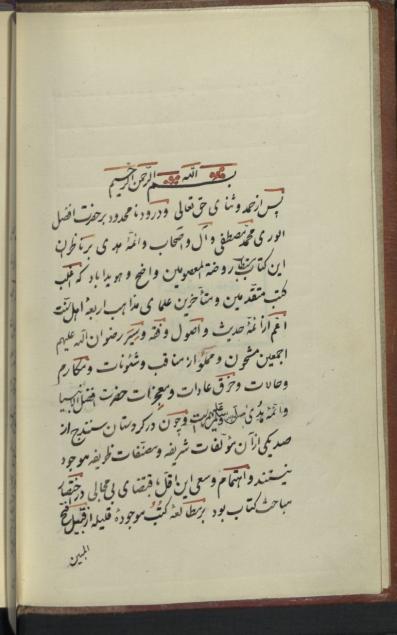 بسم الله الرحمن الرحیم
پس از حمد و ثنای حق تعالی و درود نامحدود بر حضرت افضل
الوری محمد مصطفی و آل و اصحاب و ائمهٔ هدی بر ناظران
این کتاب روضة المعصومین واضح و هویدا باد که اغلب
کتب متقدمین و متأخرین علمای مذاهب اربعهٔ اهل سنت
اعم از ائمهٔ حدیث و اصول و فقه و سیر رضوان الله علیهم
اجمعین مشحون و مملو از مناقب و شئونات و مکارم
و حالات و خرق عادات و معجزات حضرت افضل الانبیا
و ائمهٔ هدی و چون در کردستان سنندج از
صد یکی از آن مؤلفات شریفه و مصنفات ظریفه موجود
نیستند و اهتمام و سعی این اقل مقتضای بی مجالی در اختصار
مباحث کتاب بود بر مطالعهٔ کتب موجودهٔ قلیله از قبیل فتح
المبین